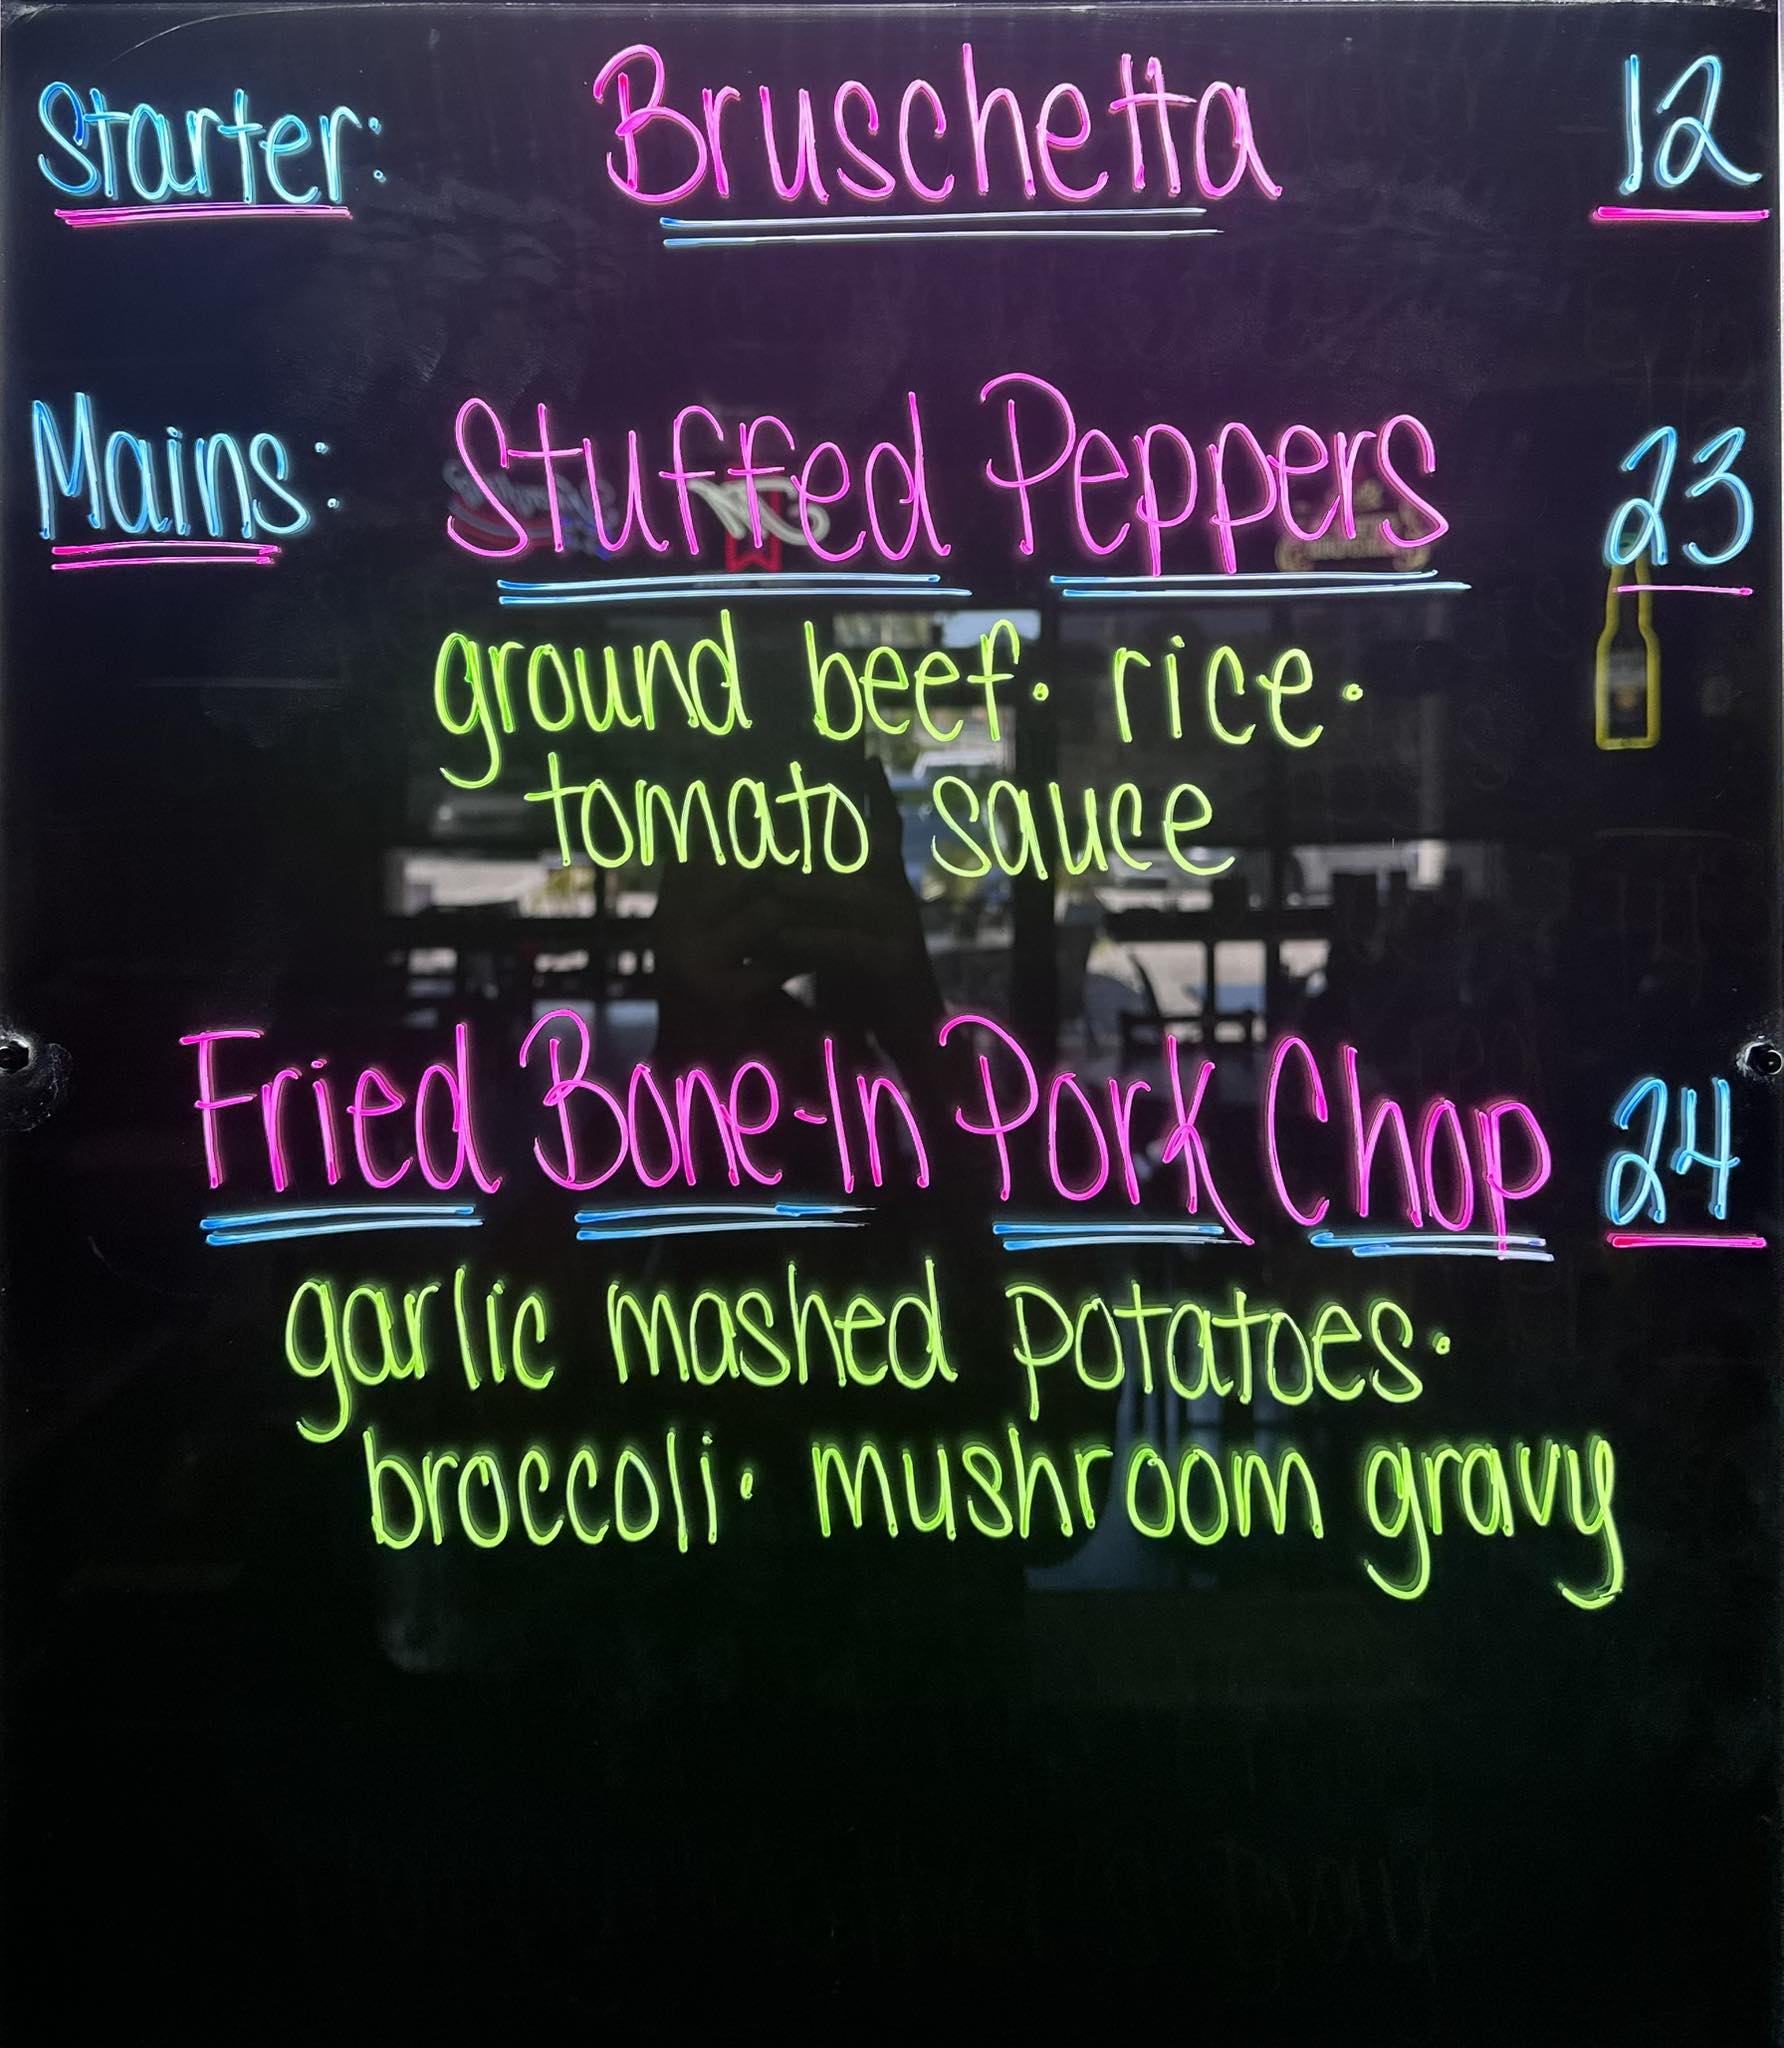 Starter: Bruschetta 12
Mains: Stuffed Peppers 23
ground beef· rice·
tomato sauce
Fried Bone-In Pork Chop 24
garlic mashed potatoes·
broccoli· mushroom gravy